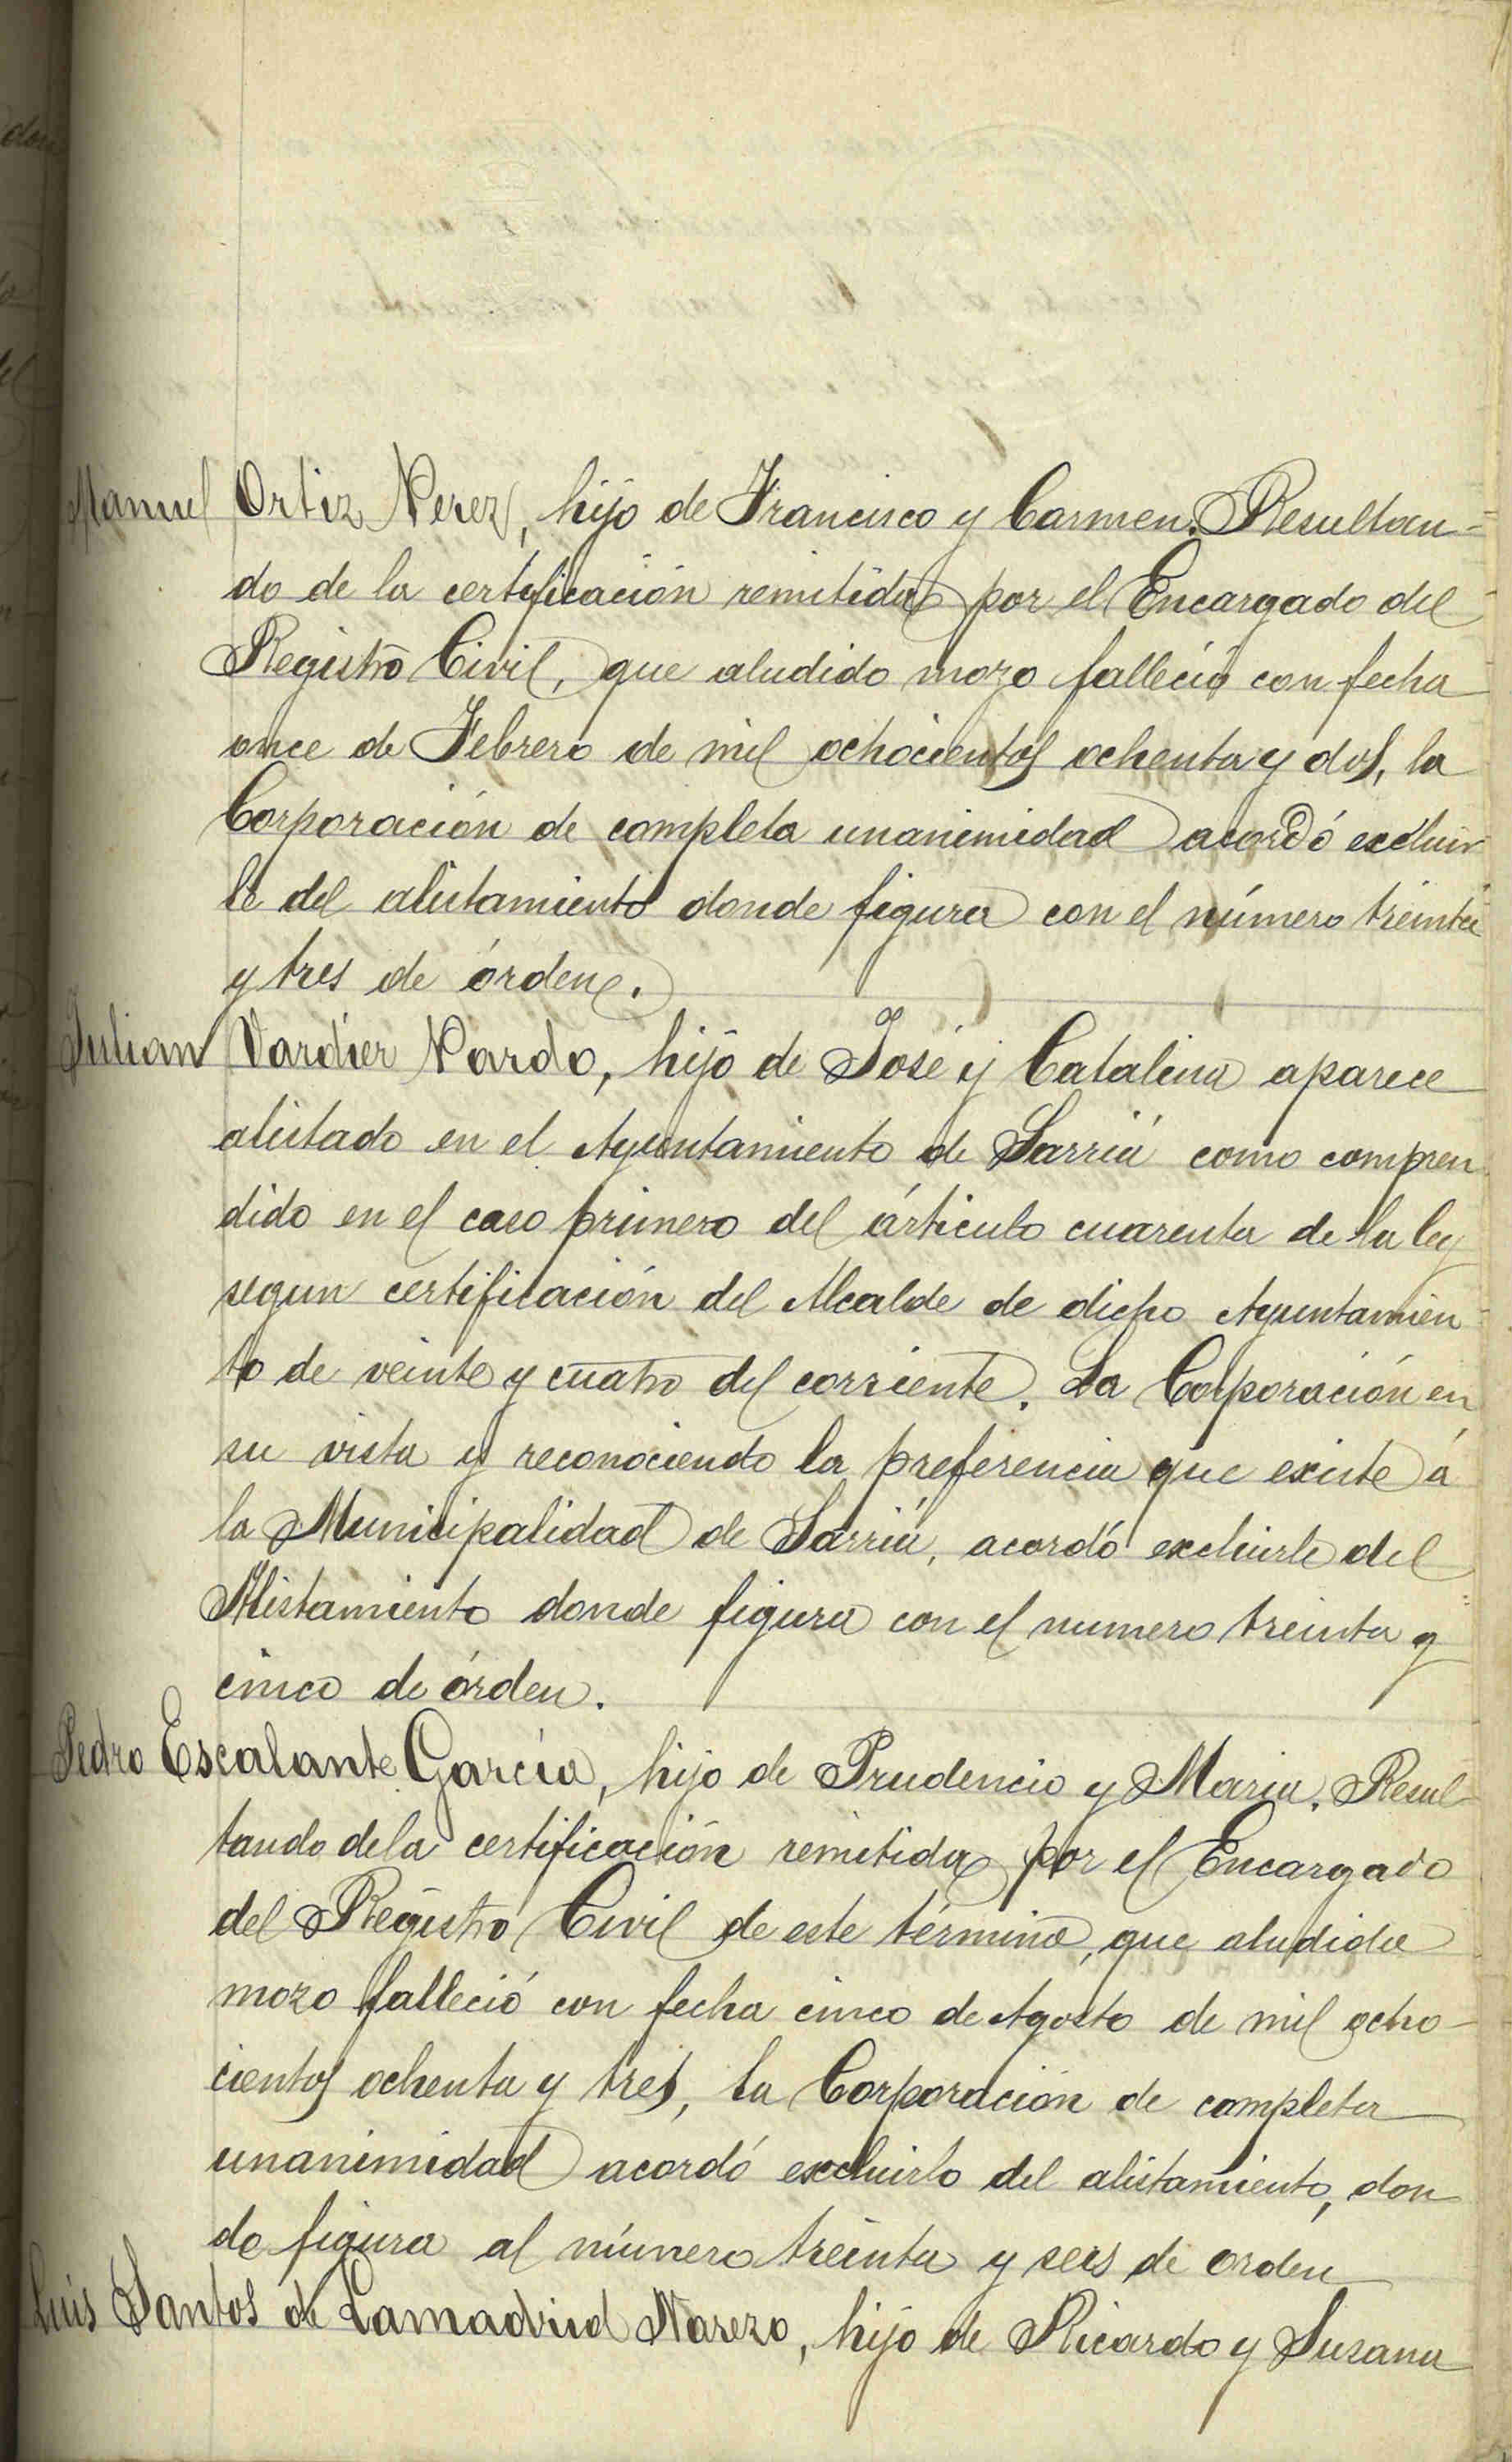 Manuel Ortiz Perez, hijo de Francisco y Carmen. Resultan-
do de la certificación remitida por el Encargado del
Registro Civil, que aludido mozo falleció con fecha
once de Febrero de mil ochocientos ochenta y dos, la
Corporación de completa unanimidad acordó excluir
le del alistamiento donde figura con el número treinta
y tres de órden.
Julian Vardier Pardo, hijo de José y Catalina aparece
alistado en el Ayuntamiento de Sarriá como compren
dido en el caso primero del ártículo cuarenta de la ley
segun certificación del Alcalde de dicho Ayuntamien
to de veinte y cuatro del corriente. La Corporación en
su vista y reconociendo la preferencia que existe á
la Municipalidad de Sarriá, acordó excluirle del
Alistamiento donde figura con el numero treinta y
cinco de órden.
Pedro Escalante García, hijo de Prudencio y Maria. Resul-
tando de la certificación remitida por el Encargado
del Registro Civil de este término, que aludido
mozo falleció con fecha cinco de Agosto de mil ocho-
cientos ochenta y tres, la Corporación de completa
unanimidad acordó excluirlo del alistamiento, don
de figura al número treinta y seis de orden
Luis Santos de Lamadrid Narezo, hijo de Ricardo y Susana